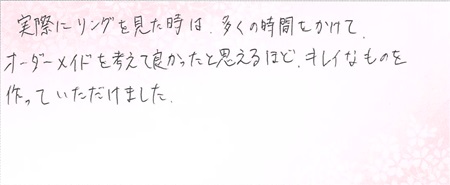 実際にリングを見た時は、多くの時間をかけて、
オーダーメイドを考えて良かったと思えるほど、キレイなものを
作っていただけました。